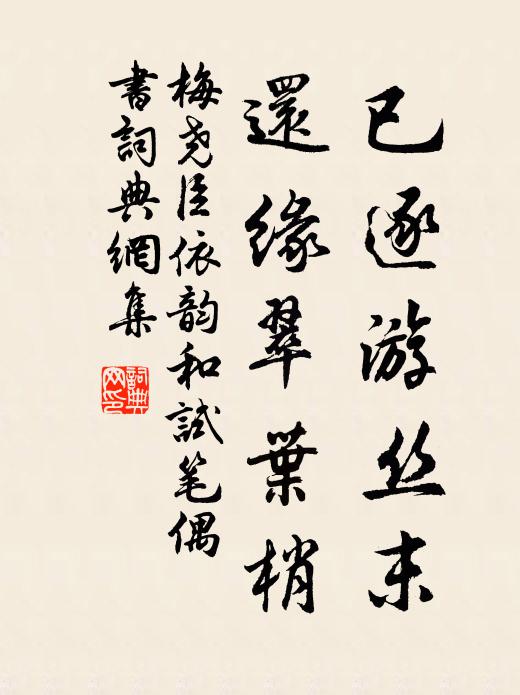 已逐游丝末
還緣翠葉梢
梅尧臣依韵和試笔偶
書詞典網集
詞典网印